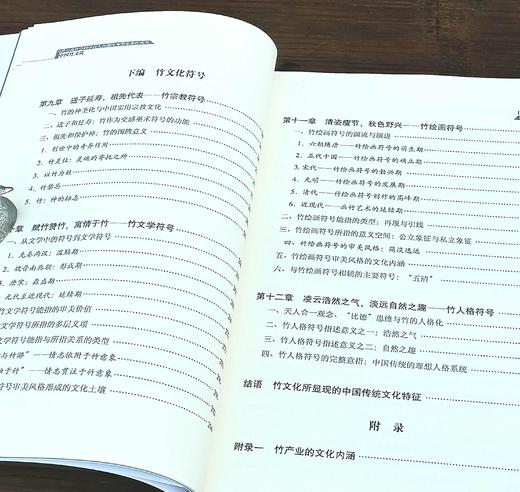 中国竹文化
下编 竹文化符号
第九章 送子延寿，祖先代表——竹宗教符号
一、竹的神圣化与中国实用宗教文化
二、送子和延寿：竹作为交感巫术符号的功能
三、祖先和保护神：竹的图腾意义
1. 创世中的奇异作用
2. 竹灵位：灵魂的寄托之所
3. 以竹为姓
4. 竹禁忌
5. 竹：神的标志
章 赋竹赞竹，寓情于竹——竹文学符号
一、从文学中的符号到文学符号
1. 先秦两汉：滥觞期
2. 魏晋南北朝：形成期
3. 唐宋：鼎盛期
元代至近现代：延续期
文学符号能指的审美价值
文学符号所指的多层义项
学符号能指与所指关系的类型
——情志依附于竹意象
”——情志贯注于竹意象
符号审美风格形成的文化土壤
第十一章 清姿瘦节，秋色野兴——竹绘画符号
一、竹绘画符号的源流与演进
1. 六朝隋唐——竹绘画符号的萌生期
2. 五代中国——竹绘画符号的成立期
3. 宋代——竹绘画符号的勃兴期
4. 元明——竹绘画符号的发展期
5. 清代——竹绘画符号创作的高峰期
6. 近现代——画竹艺术的延续期
二、竹绘画符号能指的类型：再现与引线
三、竹绘画符号所指的意义空间：公立象征与私立象征
四、竹绘画符号的审美风格：简淡逸远
五、竹绘画符号审美风格的文化内涵
六、与竹绘画符号相樀的主要符号：“五清”
第十二章 凌云浩然之气，淡远自然之趣——竹人格符号
一、天人合一观念、“比德”思维与竹的人格化
二、竹人格符号指述意义之一：浩然之气
三、竹人格符号指述意义之二：自然之趣
四、竹人格符号的完整意指：中国传统的理想人格系统
结语 竹文化所显现的中国传统文化特征
附 录
附录一 竹产业的文化内涵